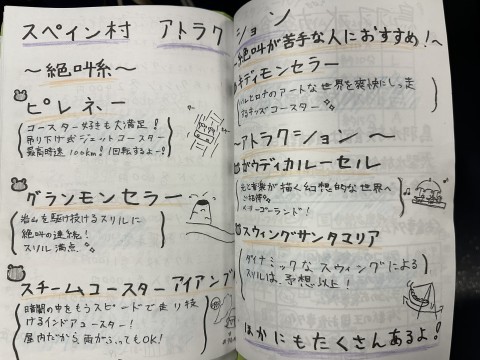 スペイン村 アトラクション
〜絶叫系〜
ピレネー
コースター好きも大満足!
吊り下げ式ジェットコースター
最高時速100km! 1回転するよー!
グランモンセラー
岩山を駆け抜けるスリルに
絶叫の連続!
スリル満点
スチームコースターアイアンブ
暗闇の中をもうスピードで走り抜
けるインドアコースター!
屋内だから、雨がふってもOK!
〜絶叫が苦手な人におすすめ!〜
キディモンセラー
バルセロナのアートな世界を爽快にしっ走
するキッズコースター
〜アトラクション〜
ガウディカルーセル
光と音楽が描く幻想的な世界へ
ご招待
メリーゴーランド!
スウィングサンタマリア
ダイナミックなスウィングによる
スリルは、予想以上!
ほかにもたくさんあるよ!